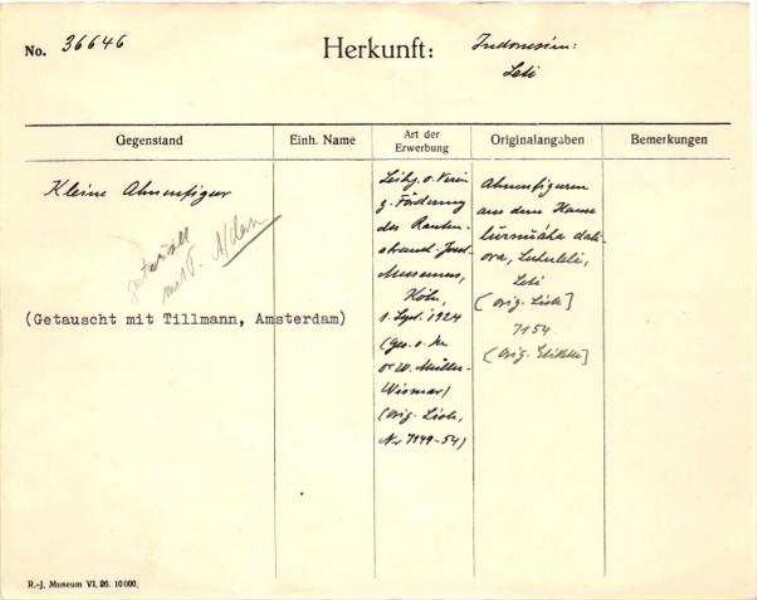 No. 36646
Herkunft: Indonesien:
Leti
Gegenstand
Einh. Name
Art der
Erwerbung
Originalangaben
Bemerkungen
Kleine Ahnenfigur
mit T. A/dam
(Getauscht mit Tillmann, Amsterdam)
Leihg. v. Verein
z. Förderung
des Rauten-
strauch-Joest
Museums,
Köln,
1. Sept. 1924
(Ges. v. Dr.
W. Müller-
Wismar)
(orig. Liste,
Nr 7149-54)
Ahnenfiguren
aus dem Hause
Luhuleli,
Leti
(orig. Liste]
7154
(orig. Etikette]
R.-J. Museum VI. 26. 10000.